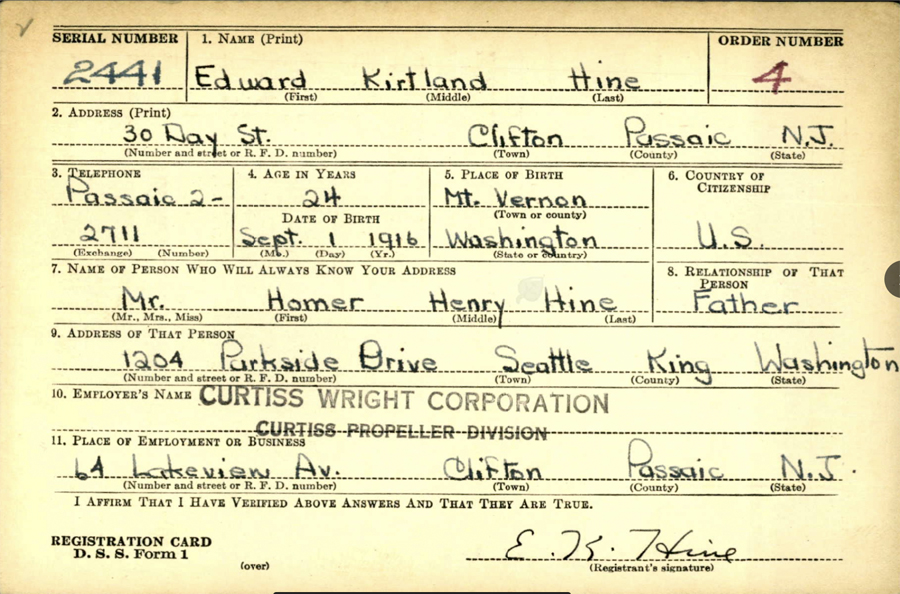 SERIAL NUMBER 1. NAME (Print) ORDER NUMBER
2441 Edward Kirtland Hine 4
(First) (Middle) (Last)
2. ADDRESS (Print)
30 Day St. Clifton Passaic N.J.
(Number and street or R. F. D. number) (Town) (County) (State)
3. TELEPHONE 4. AGE IN YEARS 5. PLACE OF BIRTH 6. COUNTRY OF CITIZENSHIP
Passaic 2- 24 Mt. Vernon
DATE OF BIRTH (Town or county)
2711 Sept. 1 1916 Washington U.S.
(Exchange) (Number) (Mo.) (Day) (Yr.) (State or country)
7. NAME OF PERSON WHO WILL ALWAYS KNOW YOUR ADDRESS 8. RELATIONSHIP OF THAT PERSON
Mr. Homer Henry Hine Father
(Mr., Mrs., Miss) (First) (Middle) (Last)
9. ADDRESS OF THAT PERSON
1204 Parkside Drive Seattle King Washington
(Number and street or R. F. D. number) (Town) (County) (State)
10. EMPLOYER'S NAME CURTISS WRIGHT CORPORATION
CURTISS PROPELLER DIVISION
11. PLACE OF EMPLOYMENT OR BUSINESS
64 Lakeview Av. Clifton Passaic N.J.
(Number and street or R. F. D. number) (Town) (County) (State)
I AFFIRM THAT I HAVE VERIFIED ABOVE ANSWERS AND THAT THEY ARE TRUE.
REGISTRATION CARD
D. S. S. Form 1 E. K. Hine
(over) (Registrant's signature)